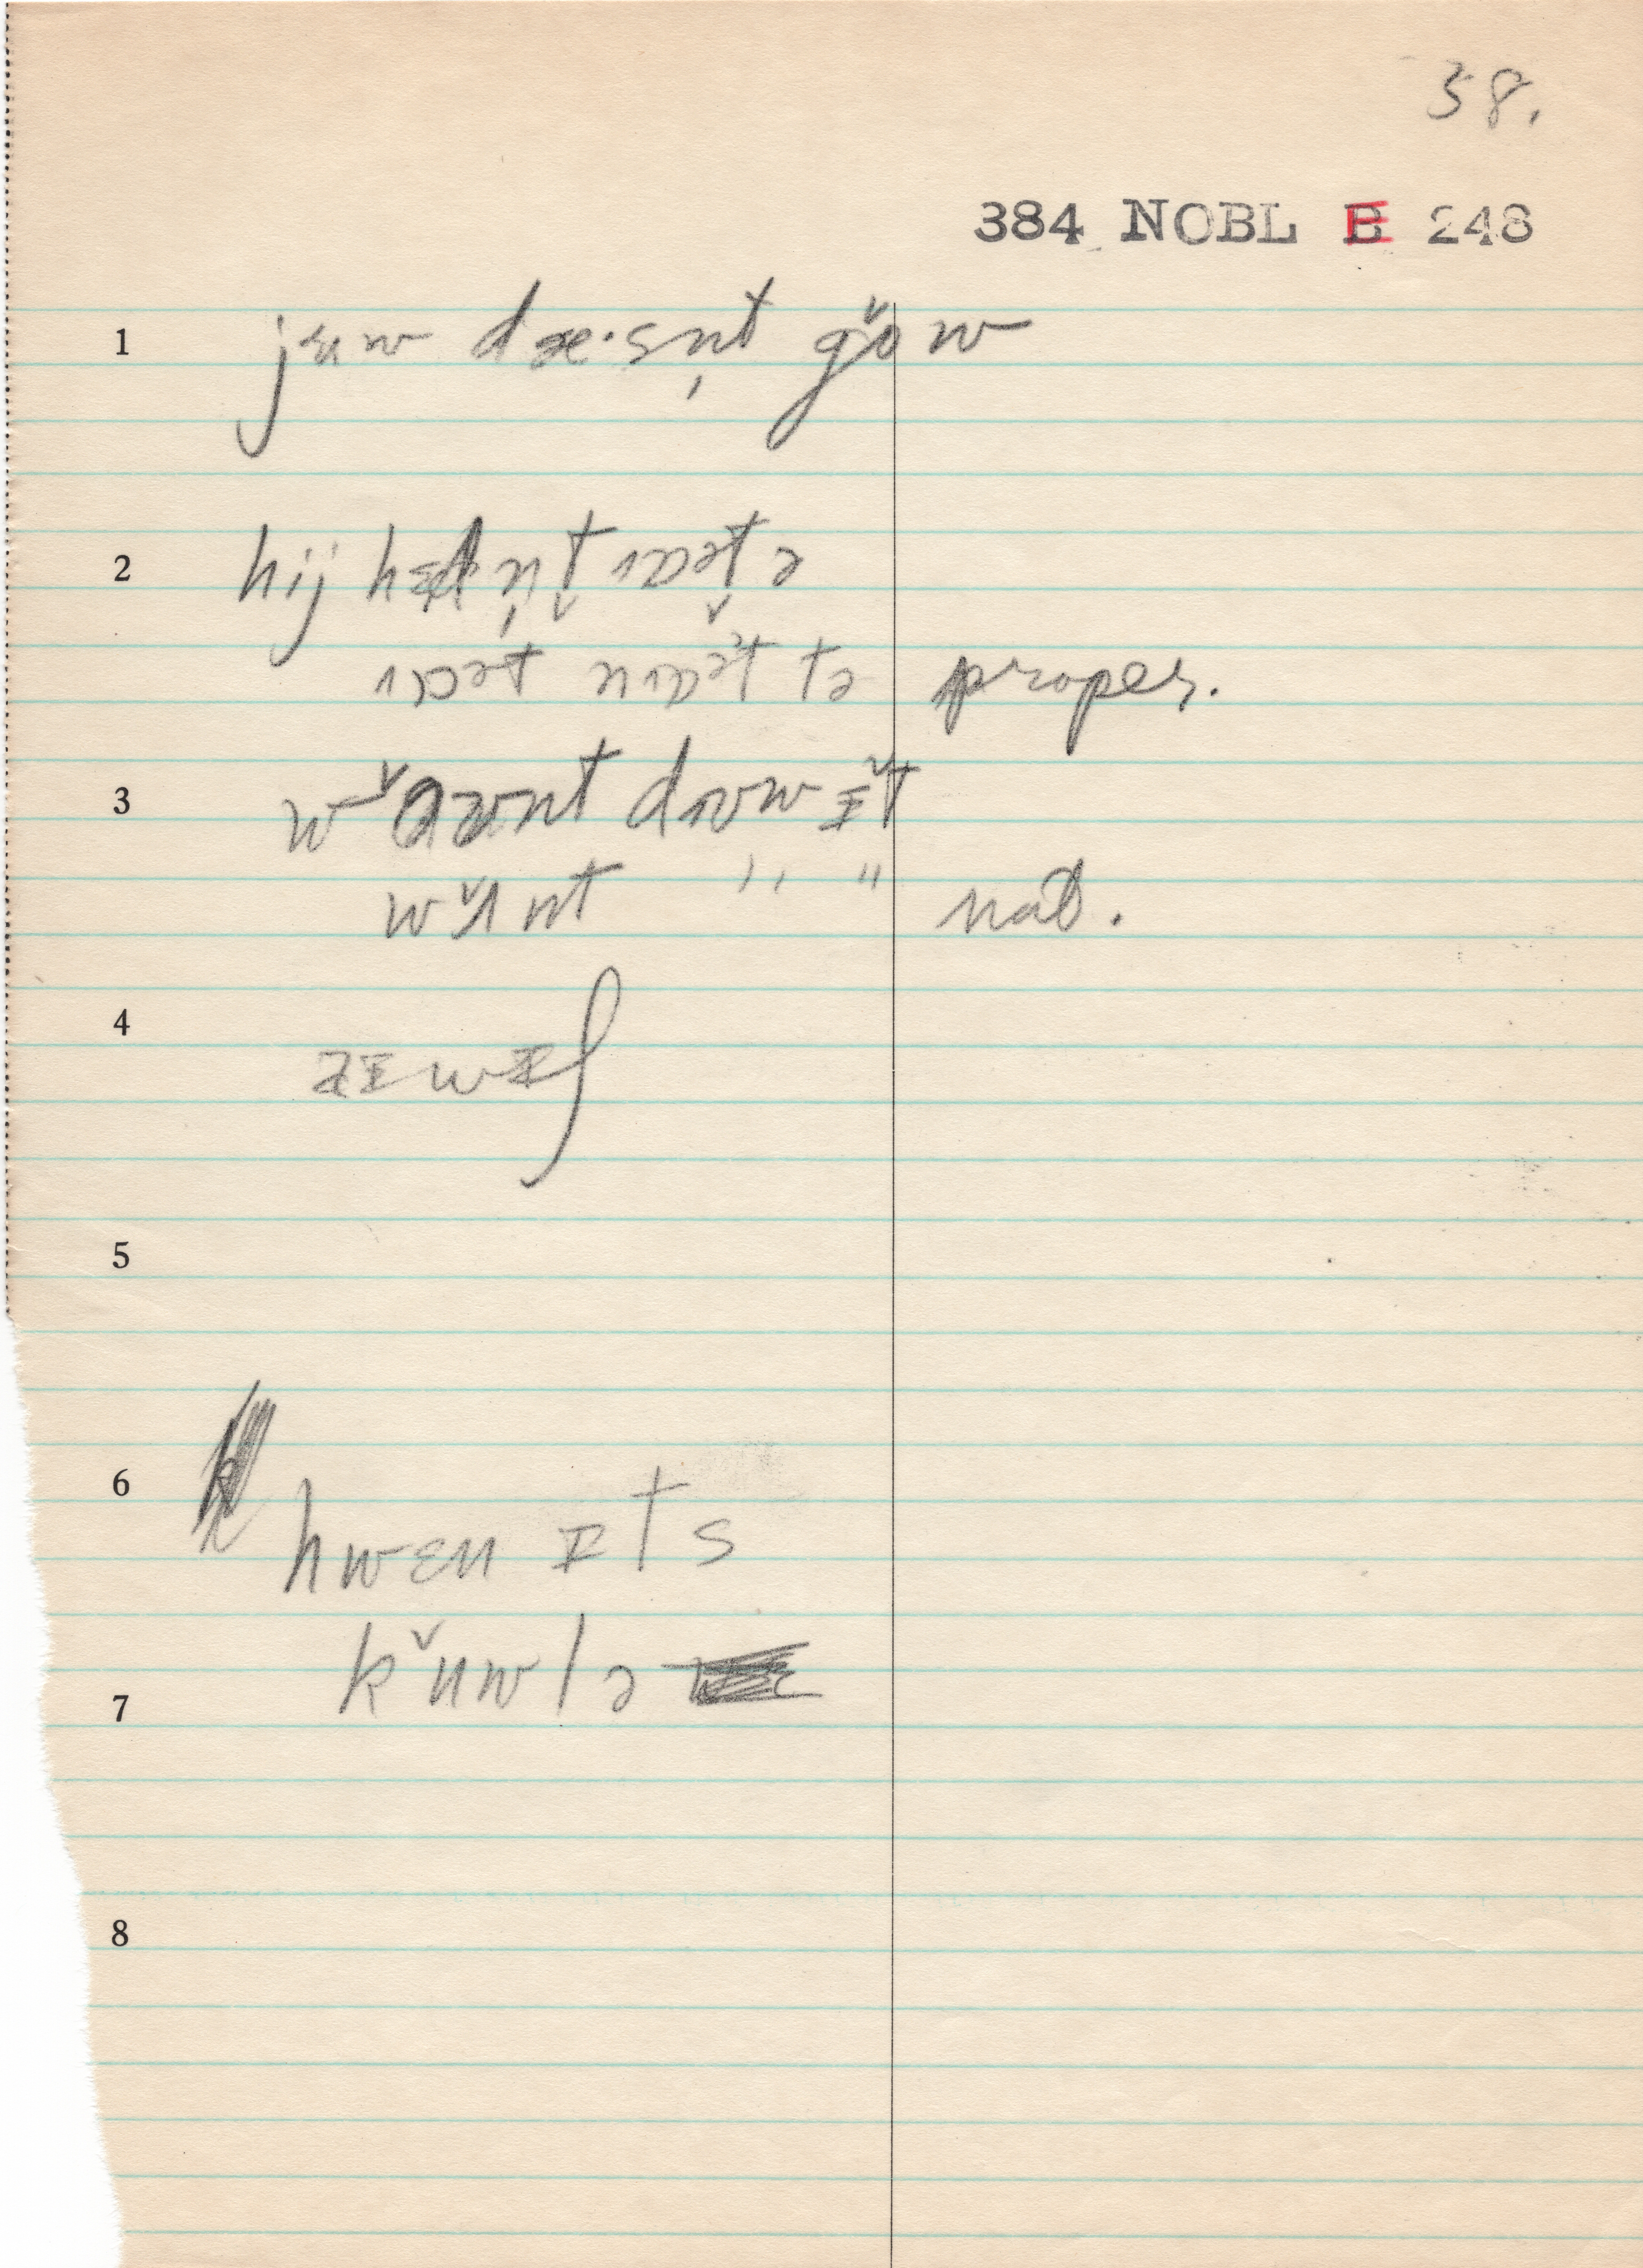 38.
384 NOBL B 248
1 jʉw dæ·sn̩t gŏw
2 hij hædn̩t ɔət ə
ɔət nɔət tə proper.
3 wont drʊw ɪ̆t
wʌ̆nt " " nat.
4 zɪwɪʃ
5
6 hwɛn ɪts
7 kʉ̆wlə
8